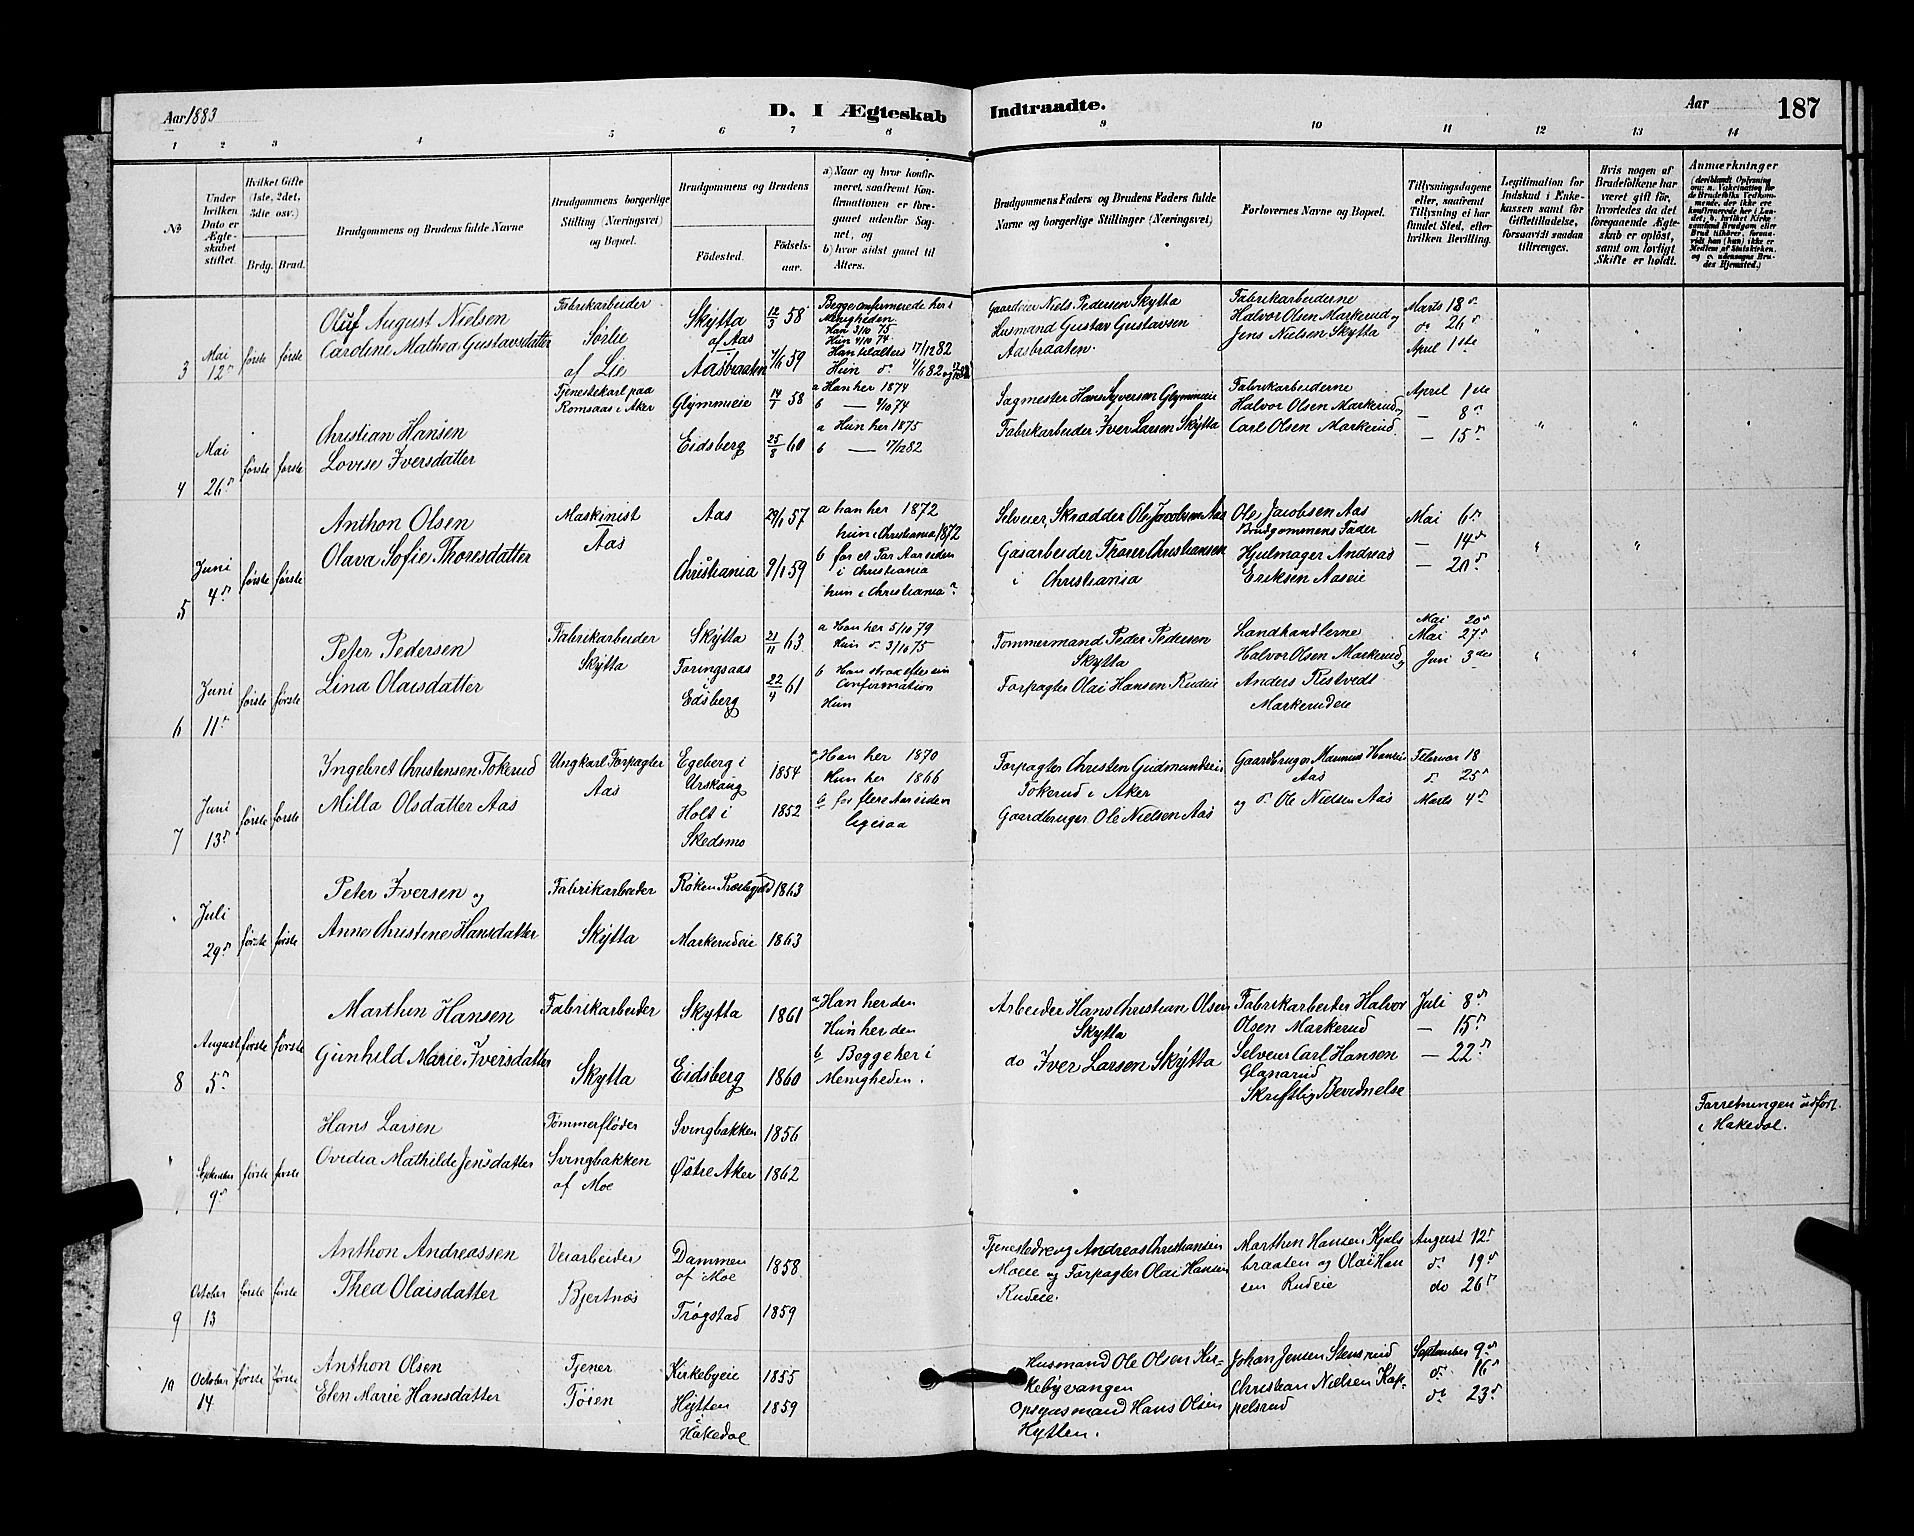 Aar 1883
D. I Ægteskab Indtraadte.
Aar
187
1 2 3 4 5 6 7 8 9 10 11 12 13 14
№
Under hvilken Dato er Ægteskabet stiftet.
Hvilket Gifte (1ste, 2det, 3die osv.)
Brdg. Brud.
Brudgommens og Brudens fulde Navne
Brudgommens borgerlige Stilling (Næringsvei) og Bopæl.
Brudgommens og Brudens
Födested.
Födselsaar.
a) Naar og hvor konfirmeret, saafremt Konfirmationen er foregaaet udenfor Sognet, og
b) hvor sidst gaaet til Alters.
Brudgommens Faders og Brudens Faders fulde Navne og borgerlige Stillinger (Næringsvei)
Forlovernes Navne og Bopæl.
Tillysningsdagene eller, saafremt Tillysning ei har fundet Sted, efter hvilken Bevilling.
Legitimation for Indskud i Enkekassen samt for Giftetilladelse, forsaavidt saadan tiltrænges.
Hvis nogen af Brudefolkene har været gift för, hvorledes da det foregaaende Ægteskab er oplöst, samt om lovligt Skifte er holdt.
Anmærkninger
3
Mai 12te
første første
Oluf August Nielsen
Caroline Mathea Gustavsdatter
Fabrikarbeider
Sørlie
af Lie
Skytta
af Aas
Aasbraaten
12/3 58
7/11 59
Begge confirmerede her i
Menigheden
Han 3/10 75
Hun 4/10 74
Han til alters 17/12 82
Gaardeier Niels Pedersen Skytta
Husmand Gustav Gustavsen
Aasbraaten.
Fabrikarbeiderne
Halvor Olsen Markerud og
Jens Nielsen Skytta
Marts 18de
do 26de
April 1ste
4
Mai 26de
første første
Christian Hansen
Lovise Iversdatter
Tjenestekarl paa
Romsaas i Aker
Glymmeie
Eidsberg
58
25/8 60
a Han her 1874
b — 4/10 74
a Hun her 1875
b — 17/12 82
Sagmester Hans Syversen Glymmeie
Fabrikarbeider Iver Larsen Skytta
Fabrikarbeiderne
Halvor Olsen Markerud,
Carl Olsen Markerud.
April 1ste
— 8de
— 15de
5
Juni 4de
første første
Anthon Olsen
Olava Sofie Thoresdatter
Maskinist
Aas
Aas
Christiania
29/1 57
9/1 59
a han her 1872
hun i Christiania 1872
b for et Par Aar siden
i Christiania
hun i Christiania
Selveier, Skrædder Ole Jacobsen Aas
Gasarbeider Thorer Christiansen
i Christiania
Ole Jacobsen Aas
Brudgommens Fader
Hjulmager Andreas
Eriksen Aaseie
Mai 6te
— 14de
— 20de
6
Juni 11te
første første
Peter Pedersen
Lina Olaisdatter
Fabrikarbeider
Skytta
Skytta
Toringsaas
i
Eidsberg
21/11 63
22/4 61
a Han her 5/10 79
Hun do 3/10 75
b Han strax efter sin
Confirmation
Hun
Tømmermand Peder Pedersen
Skytta
Forpagter Olai Hansen Rudeie
Landhandlerne
Halvor Olsen Markerud og
Anders Ristvedt
Markerudeie
Mai 20de
Mai 27de
Juni 3die
7
Juni 13de
første første
Ingebret Christensen Tokerud
Milla Olsdatter Aas
Ungkarl Forpagter
Aas
Egeberg i
Urskoug
Holt i
Skedsmo
1854
1852
a Han her 1870
Hun her 1866
b for flere Aar siden
ligesaa
Forpagter Christen Gudmundsen
Tokerud i Aker
Gaardbruger Ole Nielsen Aas
Gaardbruger Hansen
Aas
og do Ole Nielsen Aas
Februar 18
do 25de
Marts 4de
Juli 29de
første første
Peter Iversen og
Anne Christine Hansdatter
Fabrikarbeider
Skytta
Røken Præstegjeld
Markerudeie
1863
1863
8
August 5te
første første
Marthin Hansen
Gunhild Marie Iversdatter
Fabrikarbeider
Skytta
Skytta
Eidsberg
1861
1860
a Han her den
Hun her den
b Begge her i
Menigheden.
Arbeider Hans Christian Olsen
Skytta
do Iver Larsen Skytta
Fabrikarbeider Halvor
Olsen Markerud
Selveier Carl Hansen
Glanarud
Skriftlig Bevidnelse
Juli 8de
— 15de
— 22de
September 9de
første første
Hans Larsen
Ovidia Mathilde Jensdatter
Tømmerfløder
Svingbakken
af Moe
Svingbakken
Østre Aker
1856
1862
Forretningen udført
i Hakedal.
9
October 13
første første
Anthon Andreassen
Thea Olaisdatter
Veiarbeider
Bjertnæs
Dammen
af Moe
Trøgstad
1858
1859
Tjenestedreng Andreas Christiansen
Moeie og Forpagter Olai Hansen
Rudeie.
Marthin Hansen Kjols
braaten og Olai Han
sen Rudeie
August 12te
do 19de
do 26de
10
October 14
første første
Anthon Olsen
Elen Marie Hansdatter
Tjener
Tøien
Kirkebyeie
Hytten
Hakedal
1855
1859
Husmand Ole Olsen Kir-
kebyvangen
Opsynsmand Hans Olsen
Hytten.
Johan Jensen Stensrud
Christian Nielsen Kap-
pelsrud
September 9de
do 16de
do 23de